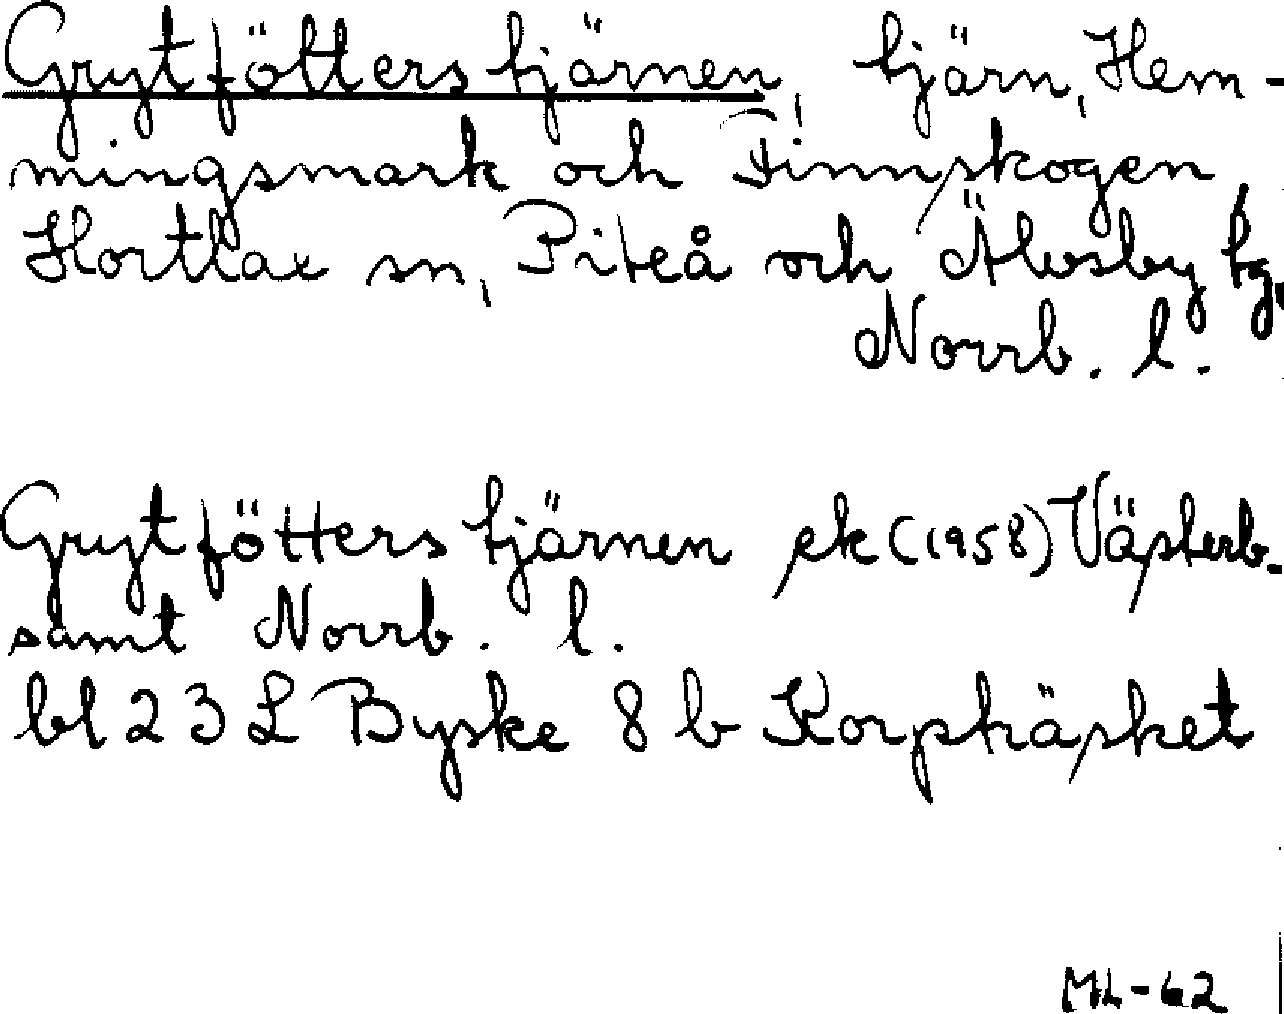 Grytfötterstjärnen, tjärn, Hem-
mingsmark och Finnskogen,
Hortlax sn, Piteå och Älvsby tg,
Norrb. l.
Grytfötterstjärnen ek (1958) Västerb.
samt Norrb. l.
bl 23 L Byske 8 b Korpträsket
ML-62